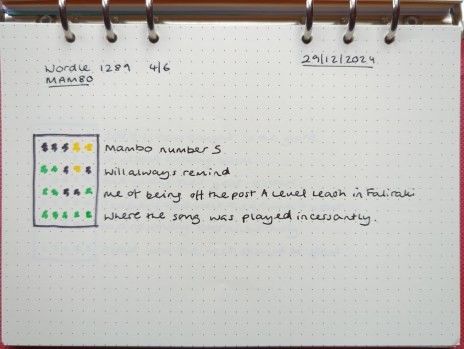 29/12/2024
Wordle 1289 4/6
MAMBO
Mambo number 5
will always remind
me of being off the post A Level leash in Faliraki
where the song was played incessantly.